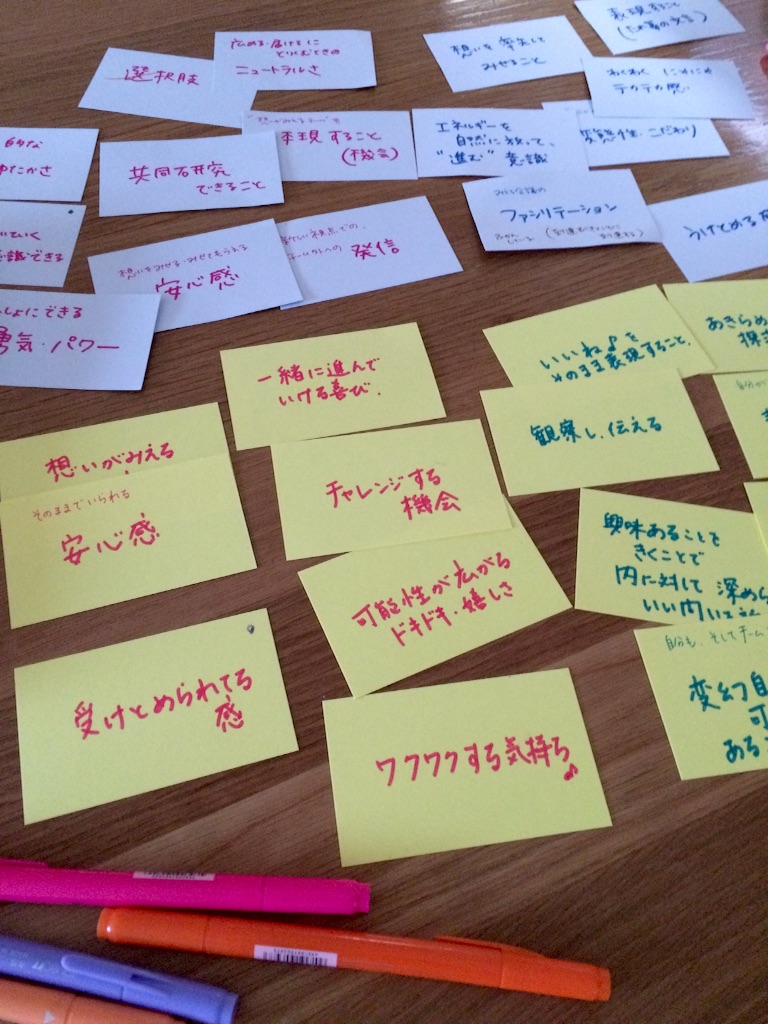 選択肢
広める・届けるに
とりくむときの
ニュートラルさ
想いを
みせること
表現すること
わくわく にやにや
テカテカ感
的な
ゆたかさ
共同研究
できること
体現すること
(機会)
エネルギーを
自然に放って、
"進む" 意識
変態性・こだわり
ていく
意識できる
想いをみせる・みせてもらえる
安心感
視点での、
発信
ファシリテーション
うけとめる
しょにできる
勇気・パワー
一緒に進んで
いける喜び.
いいね♪を
そのまま表現すること.
あきらめ
観察し、伝える
自分が
想いがみえる
そのままでいられる
安心感
チャレンジする
機会
可能性が広がる
ドキドキ・嬉しさ
興味あることを
きくことで
内に対して 深め
いい問い
受けとめられてる
感
ワクワクする気持ち♪
自分も、そしてチーム
変幻自
可
ある